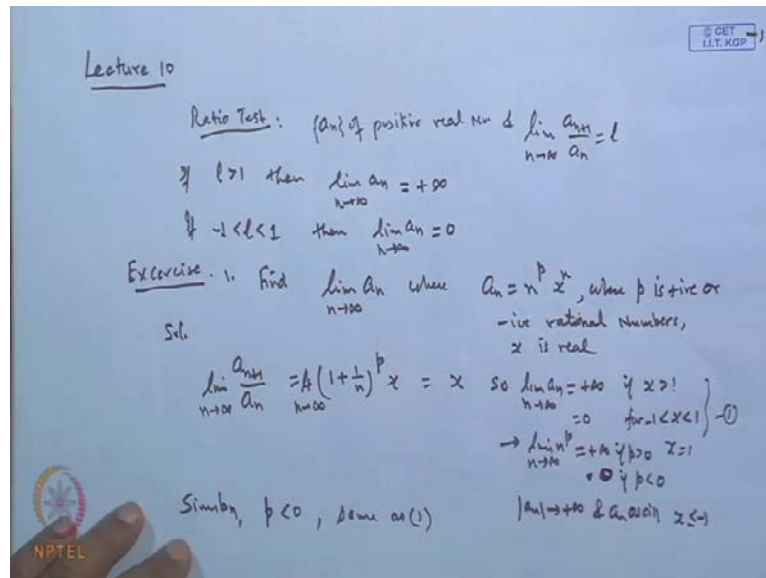 © CET
I.I.T. KGP
Lecture 10
Ratio Test : {an} of positive real Nu & lim n→∞ an+1/an = l
If l>1 then lim n→∞ an = +∞
If -1<l<1 then lim n→∞ an = 0
Excercise. 1. Find lim n→∞ an where an = n^p x^n, where p is +ive or
-ive rational Numbers,
x is real
Sol.
lim n→∞ an+1/an = lt n→∞ (1+1/n)^p x = x so lim n→∞ an = +∞ if x>1
= 0 for -1<x<1 } -(1)
→ lim n→∞ n^p = +∞ if p>0 x=1
= 0 if p<0
p<0, same as (1) |an|→+∞ & an x≤-1
NPTEL